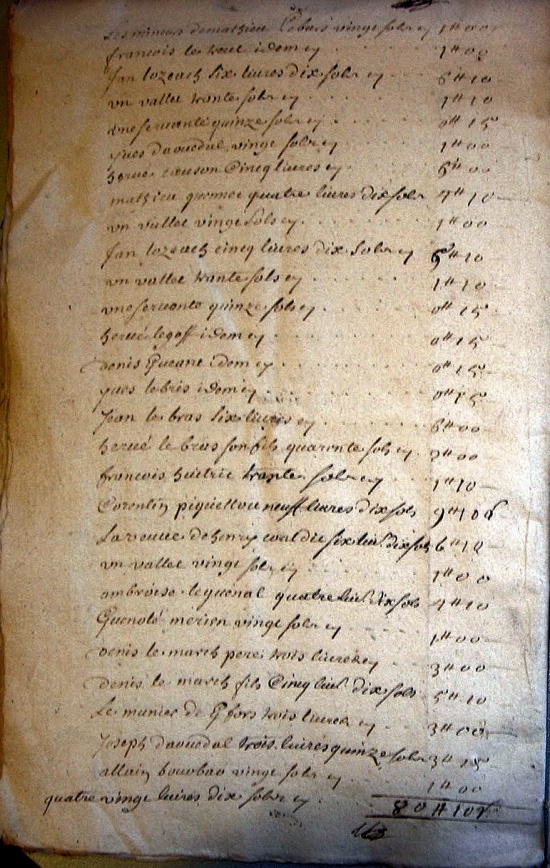 Les mineurs de mathieu Lebars vinge solz cy 1# 00
francois le idem cy 1# 00
Jan lozeach six livres dix solz cy 6# 10
un vallet trante solz cy 1# 10
une servante quinze solz cy 0# 15
yves daouedal vinge solz cy 1# 00
herve Cinq livres cy 5# 00
mathieu quatre livres dix solz 4# 10
un vallet vinge solz cy 1# 00
Jan lozeach cinq livres dix solz cy 5# 10
un vallet trante solz cy 1# 10
une servante quinze solz cy 0# 15
hervé legoff idem cy 0# 15
denis idem cy 0# 15
yves lebris idem cy 0# 15
Jean le bras six livres cy 6# 00
hervé le bras son fils quarente solz cy 2# 00
francois trante solz cy 1# 10
Corentin neuff livres dix solz 9# 10
La veuve de henry six liv. dix solz 6# 10
un vallet vinge solz cy 1# 00
ambroise leguenal quatre liv. dix solz 4# 10
Guenolé merien vinge solz cy 1# 00
denis le march pere trois livres cy 3# 00
denis le march fils Cinq liv. dix solz 5# 10
Le munier de trois livres cy 3# 00
Joseph daouedal trois livres quinze solz 3# 15
allain vinge solz cy 1# 00
quatre vinge livres dix solz cy 80# 10s